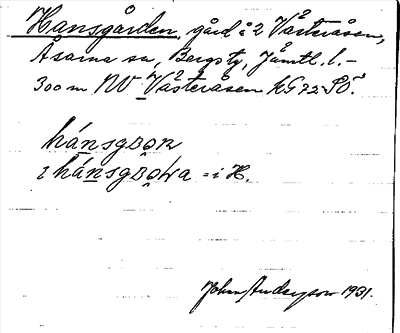 Hansgården, gård i 2 Västeråsen,
Åsarna sn, Bergs tg, Jämtl. l. –
300 m NV Västeråsen kG 72 SÖ.
hánsgɒɷn
i hánsgɒɷɽa = i H.
John Anderzson 1931.